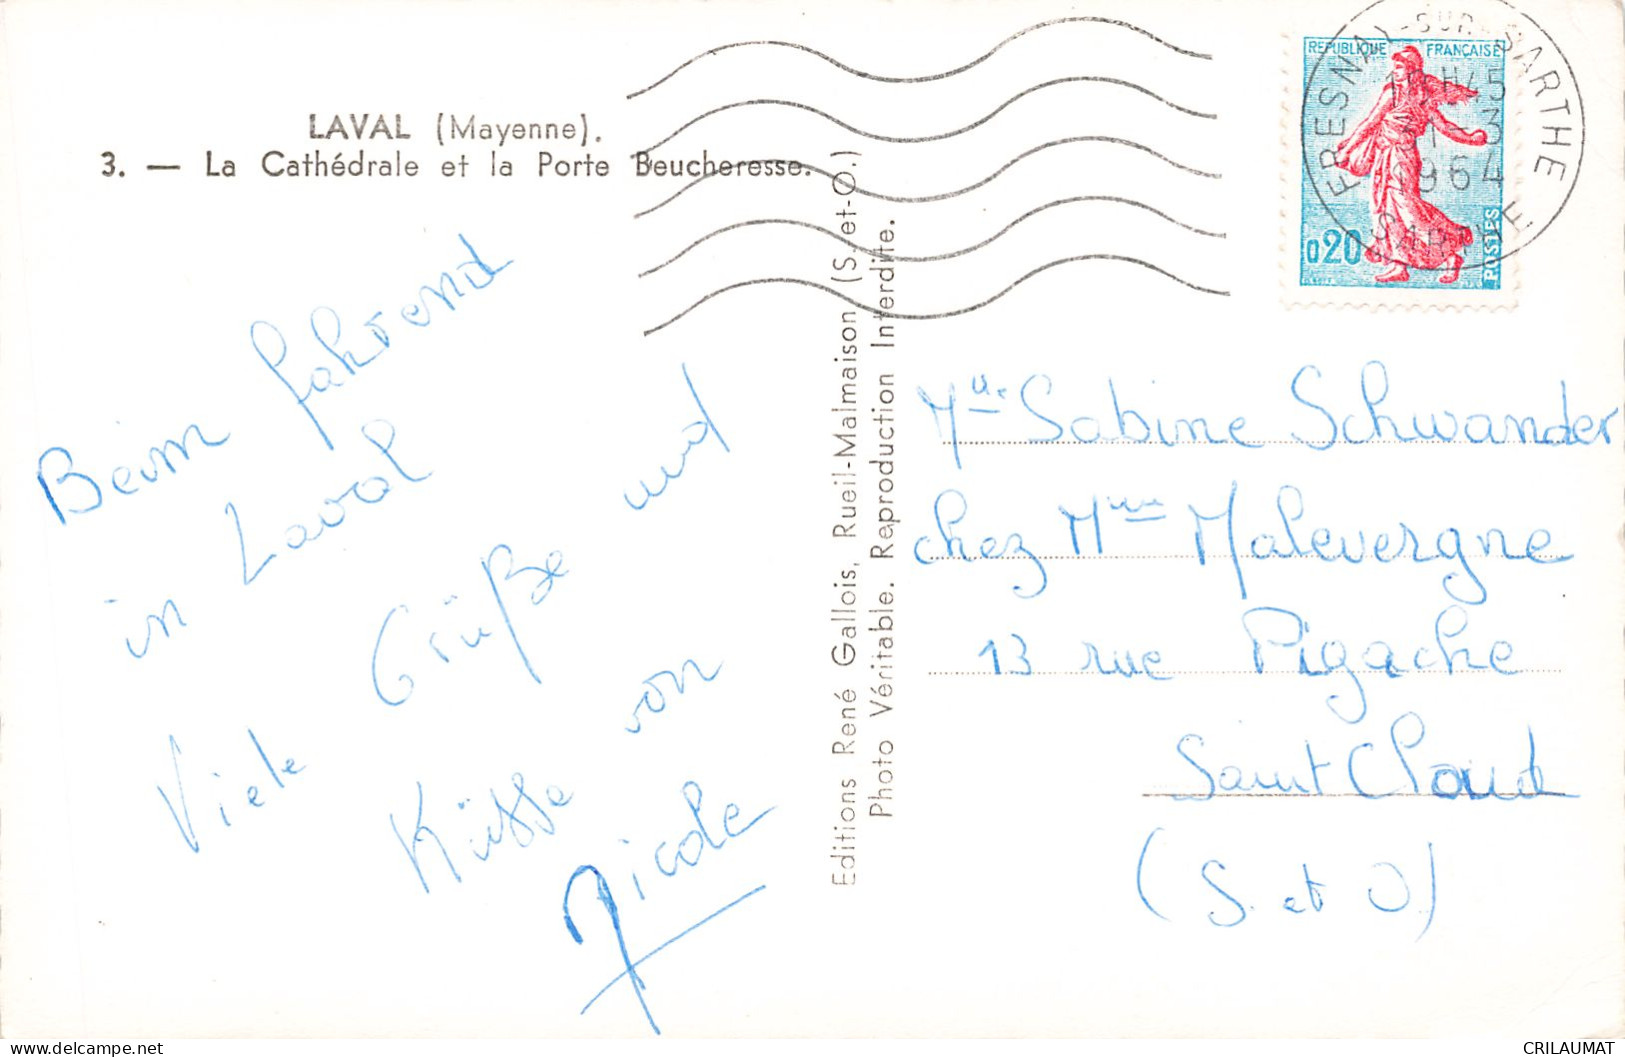 LAVAL (Mayenne).
3. — La Cathédrale et la Porte Beucheresse.
Beim fahrend
in Laval
Viele Grüße und
Küsse von
Nicole
Editions René Gallois, Rueil-Malmaison (S.-et-O.)
Photo Véritable. Reproduction Interdite.
REPUBLIQUE FRANÇAISE
0,20
POSTES
FRESNAY-SUR-SARTHE
31-3
1964
SARTHE
Mlle. Sabine Schwander
chez Mme Malevergne
13 rue Pigache
Saint Cloud
(S. et O)
delcampe.net
CRILAUMAT